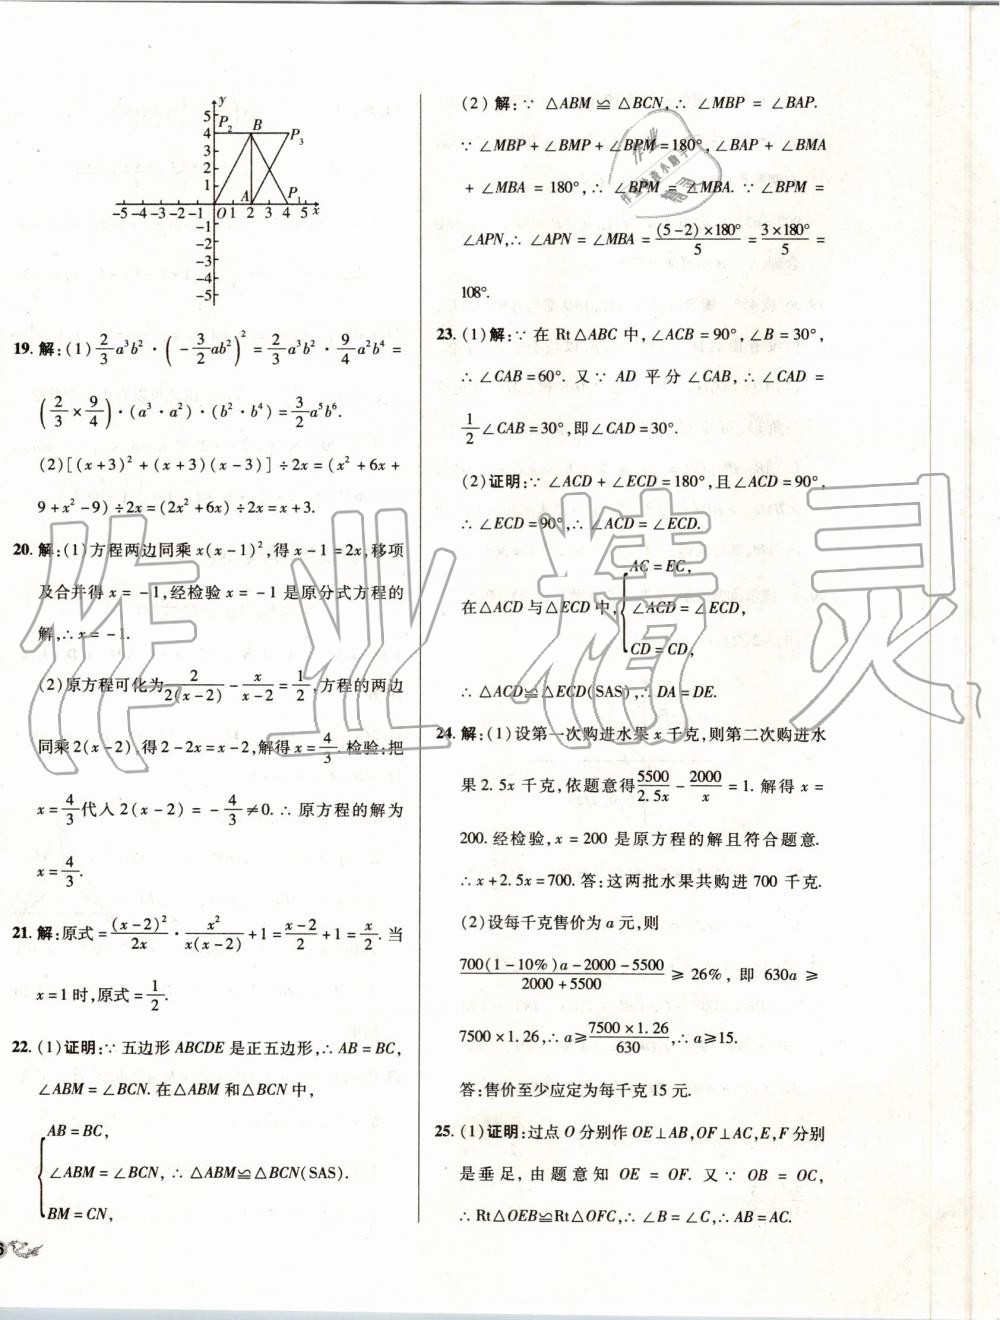 y
5
4
3
2
1
P₂
B
P₃
A
P₁
-5 -4 -3 -2 -1 O 1 2 3 4 5 x
-1
-2
-3
-4
-5
19. 解:(1) 2/3 a³b²·(-3/2 ab²)² = 2/3 a³b²·9/4 a²b⁴ =
(2/3×9/4)·(a³·a²)·(b²·b⁴)=3/2 a⁵b⁶.
(2)[(x+3)²+(x+3)(x-3)]÷2x=(x²+6x+
9+x²-9)÷2x=(2x²+6x)÷2x=x+3.
20. 解:(1)方程两边同乘x(x-1)²,得x-1=2x,移项
及合并得x=-1,经检验x=-1是原分式方程的
解,∴x=-1.
(2)原方程可化为 2/2(x-2) - x/x-2 = 1/2,方程的两边
同乘2(x-2),得2-2x=x-2,解得x=4/3.检验:把
x=4/3代入2(x-2)=-4/3≠0.∴原方程的解为
x=4/3.
21. 解:原式=(x-2)²/2x·x²/x(x-2)+1=x-2/2+1=x/2.当
x=1时,原式=1/2.
22. (1)证明:∵五边形ABCDE是正五边形,∴AB=BC,
∠ABM=∠BCN.在△ABM和△BCN中,
AB=BC,
∠ABM=∠BCN,∴△ABM≌△BCN(SAS).
BM=CN,
(2)解:∵△ABM≌△BCN,∴∠MBP=∠BAP.
∵∠MBP+∠BMP+∠BPM=180°,∠BAP+∠BMA
+∠MBA=180°,∴∠BPM=∠MBA.∵∠BPM=
∠APN,∴∠APN=∠MBA=(5-2)×180°/5=3×180°/5=
108°.
23. (1)解:∵在Rt△ABC中,∠ACB=90°,∠B=30°,
∴∠CAB=60°.又∵AD平分∠CAB,∴∠CAD=
1/2∠CAB=30°,即∠CAD=30°.
(2)证明:∵∠ACD+∠ECD=180°,且∠ACD=90°,
∴∠ECD=90°,∴∠ACD=∠ECD.
AC=EC,
在△ACD与△ECD中,∠ACD=∠ECD,
CD=CD,
∴△ACD≌△ECD(SAS),∴DA=DE.
24. 解:(1)设第一次购进水果x千克,则第二次购进水
果2.5x千克,依题意得5500/2.5x-2000/x=1.解得x=
200.经检验,x=200是原方程的解且符合题意.
∴x+2.5x=700.答:这两批水果共购进700千克.
(2)设每千克售价为a元,则
700(1-10%)a-2000-5500/2000+5500≥26%,即630a≥
7500×1.26,∴a≥7500×1.26/630,∴a≥15.
答:售价至少应定为每千克15元.
25. (1)证明:过点O分别作OE⊥AB,OF⊥AC,E,F分别
是垂足,由题意知OE=OF.又∵OB=OC,
∴Rt△OEB≌Rt△OFC,∴∠B=∠C,∴AB=AC.
作业精灵